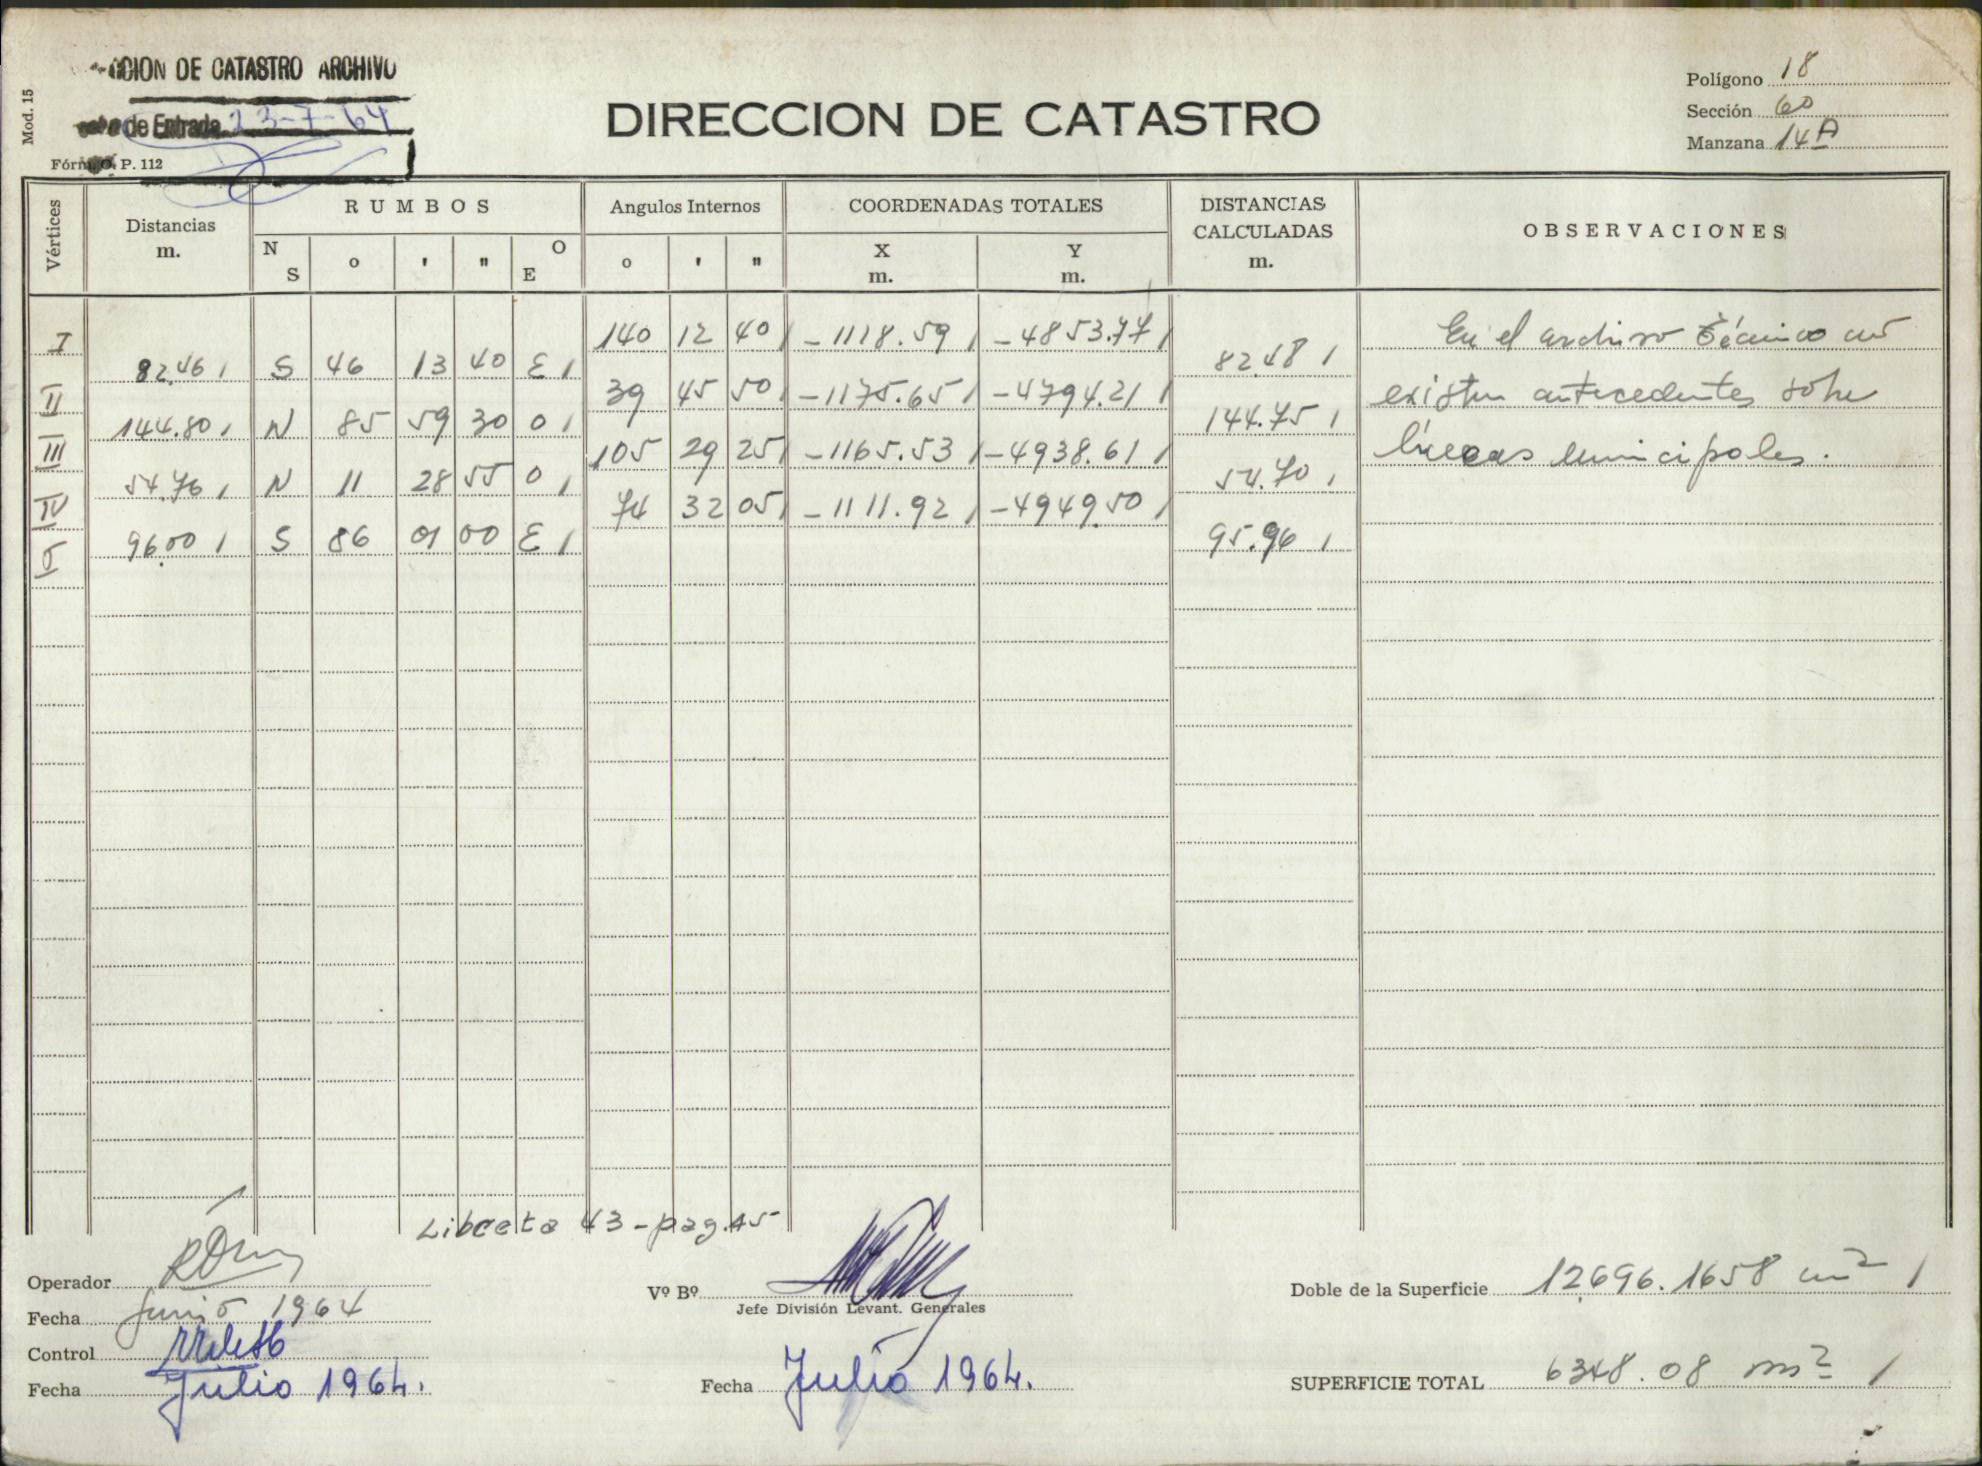 CCION DE CATASTRO ARCHIVO
de Entrada 23-7-64
Mod. 15
Fórm. O. P. 112
DIRECCION DE CATASTRO
Polígono 18
Sección 60
Manzana 14A
Vértices Distancias m. RUMBOS Angulos Internos COORDENADAS TOTALES DISTANCIAS CALCULADAS m. OBSERVACIONES
N S ° ' " O E ° ' " X m. Y m.
I 140 12 40 -1118.59 -4853.77
82.46 S 46 13 40 E 82.48
II 39 45 50 -1175.65 -4794.21
144.80 N 85 59 30 O 144.75
III 105 29 25 -1165.53 -4938.61
54.76 N 11 28 55 O 54.70
IV 74 32 05 -1111.92 -4949.50
96.00 S 86 01 00 E 95.96
V
En el archivo técnico no
existen antecedentes sobre
líneas municipales.
Libreta 43 - pag. 45
Operador
Fecha Junio 1964
Control
Fecha Julio 1964.
Vº Bº
Jefe División Levant. Generales
Fecha Julio 1964.
Doble de la Superficie 12696.1658 m²
SUPERFICIE TOTAL 6348.08 m²